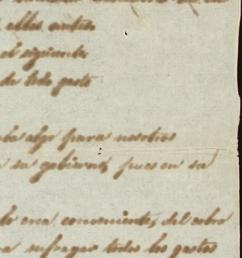 ellos antes
el siguiente
de todo gasto
algo para nosotros
su gobierno, pues en su
era conveniente, del cobro
sufragar todos los gastos